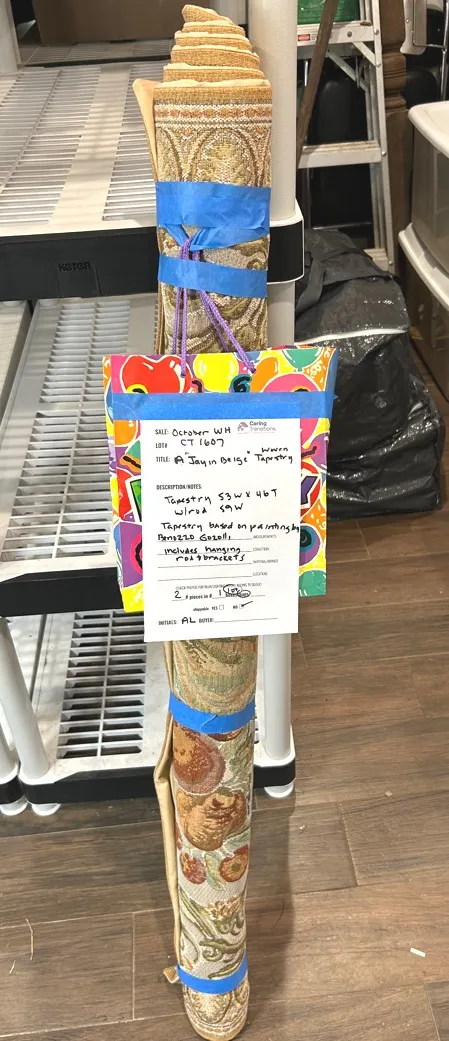 KETER
SALE: October WH
Caring Transitions
LOT# CT 1607
TITLE: A "Jay in Beige" Woven Tapestry
DESCRIPTION/NOTES:
Tapestry 53W x 46T
w/rod 59W
Tapestry based on painting by
Benozzo Gozoli
MEASUREMENTS
includes hanging
CONDITION
rod & brackets
MATERIAL/BRAND
LOCATION
2 # pieces in # 1 Lot
shippable YES NO ✓
INITIALS: AL BUYER: